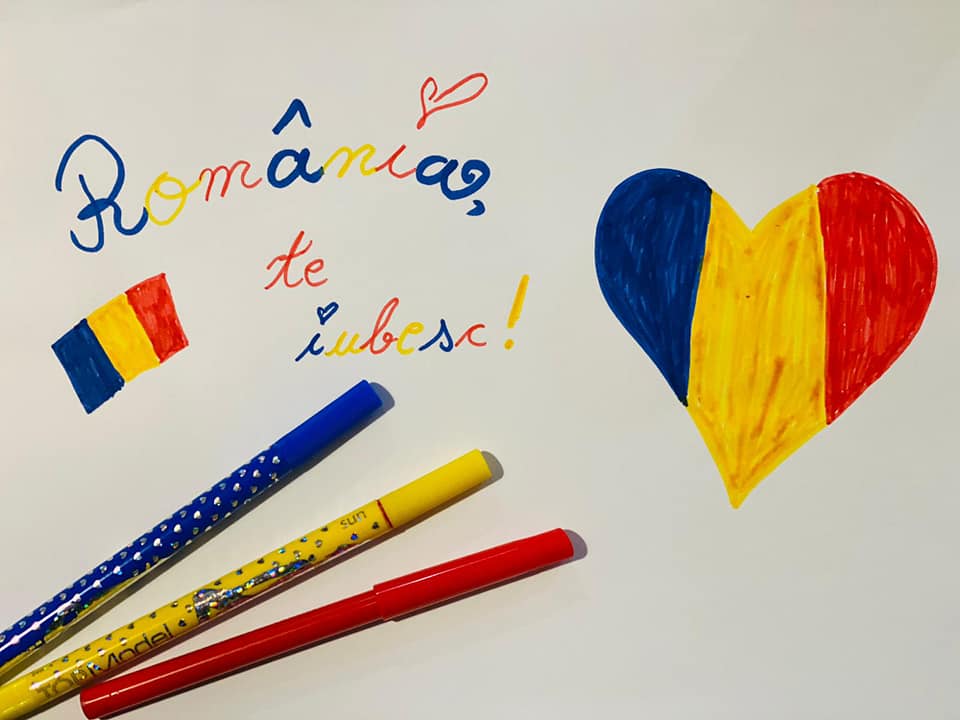 România,
te
iubesc!
sun
TOPModel